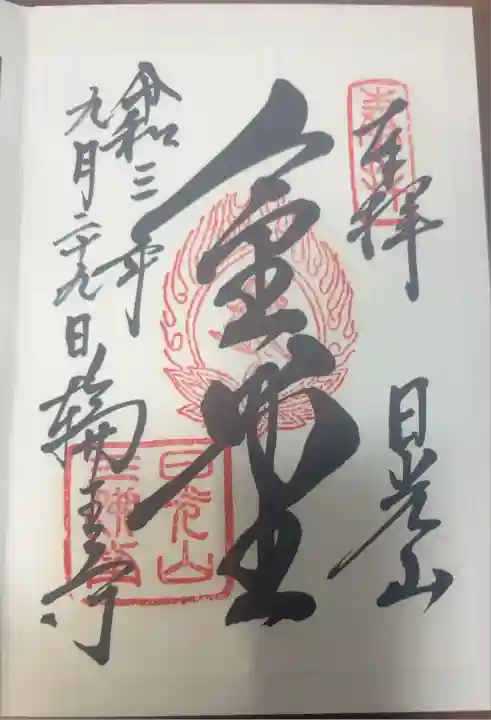 奉拝
日光山
金堂
令和三年
九月二十九日
輪王寺
日光山